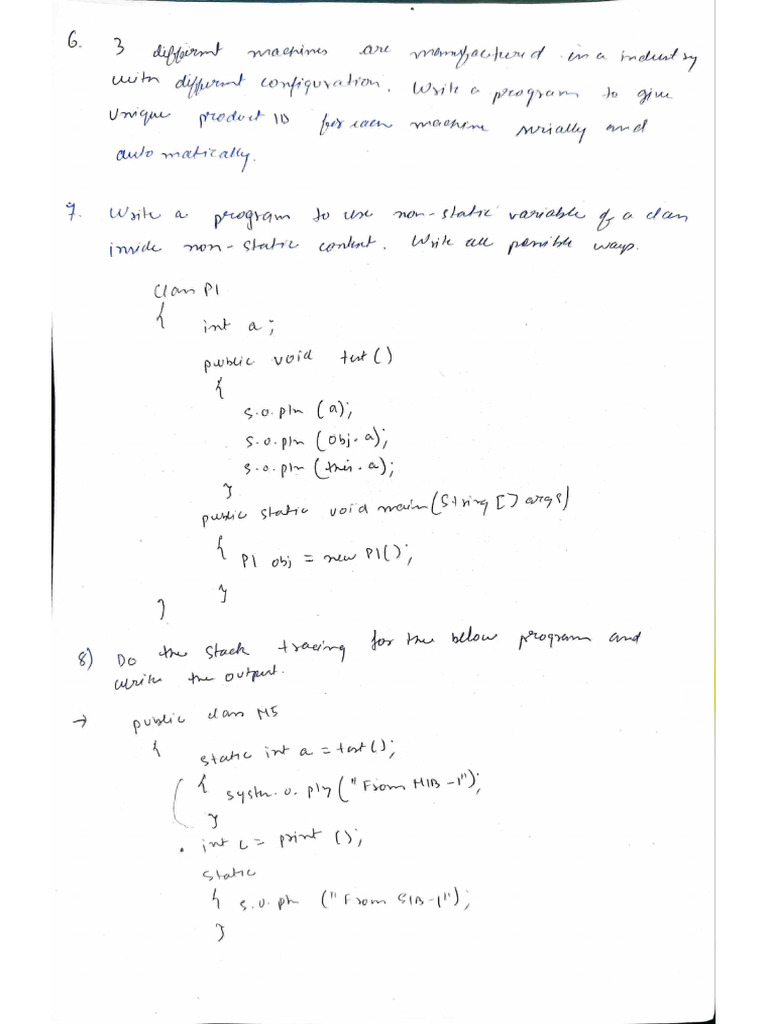 6. 3 different machines are manufactured in a industry
with different configuration. Write a program to give
Unique product ID for each machine serially and
automatically.
7. Write a program to use non-static variable of a class
inside non-static context. Write all possible ways.
Class P1
{ int a;
public void test()
{
S.o.pln (a);
S.o.pln (obj.a);
S.o.pln (this.a);
}
public static void main(String [] args)
{ P1 obj = new P1();
}
}
8) Do the stack tracing for the below program and
write the output.
→ public class M5
{ static int a = test();
{ system.o.pln ("From NIB-1");
}
• int c = print ();
static
{ s.o.pln ("From SIB-1");
}